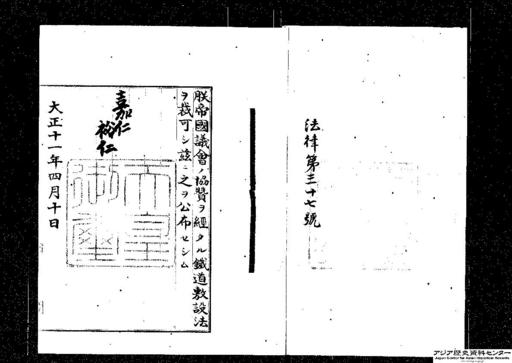 朕帝國議會ノ協贊ヲ經タル鐵道敷設法
ヲ裁可シ茲ニ之ヲ公布セシム
嘉仁
裕仁
天皇御璽
大正十一年四月十日
法律第三十七號
アジア歴史資料センター
Japan Center for Asian Historical Records